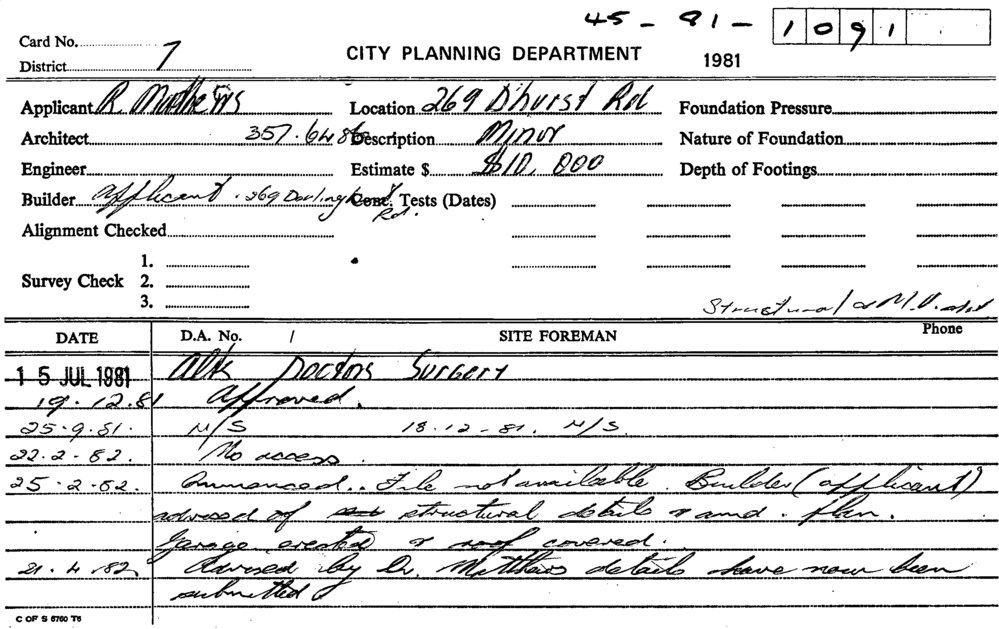 45 - 81 - 1091
Card No. 7
District
CITY PLANNING DEPARTMENT 1981
Applicant R. Mathews Location 269 D'hurst Rd Foundation Pressure
Architect 357.6486 Description Minor Nature of Foundation
Engineer Estimate $ $10,000 Depth of Footings
Builder applicant . 269 Darlinghurst Rd. Conc. Tests (Dates)
Alignment Checked
1.
Survey Check 2.
3.
Structural &
DATE D.A. No. / SITE FOREMAN Phone
15 JUL 1981 Alts Doctors Surgery
19.12.81 Approved.
25.9.81. N/S 18.12-81. N/S
22.2.82. No access.
25.2.82. Commenced.. File not available. Builder (applicant)
advised of structural details & amd. plan.
Garage erected & roof covered.
21.4.82 Advised by Dr. Matthews details have now been
submitted
C OF S 6760 T6